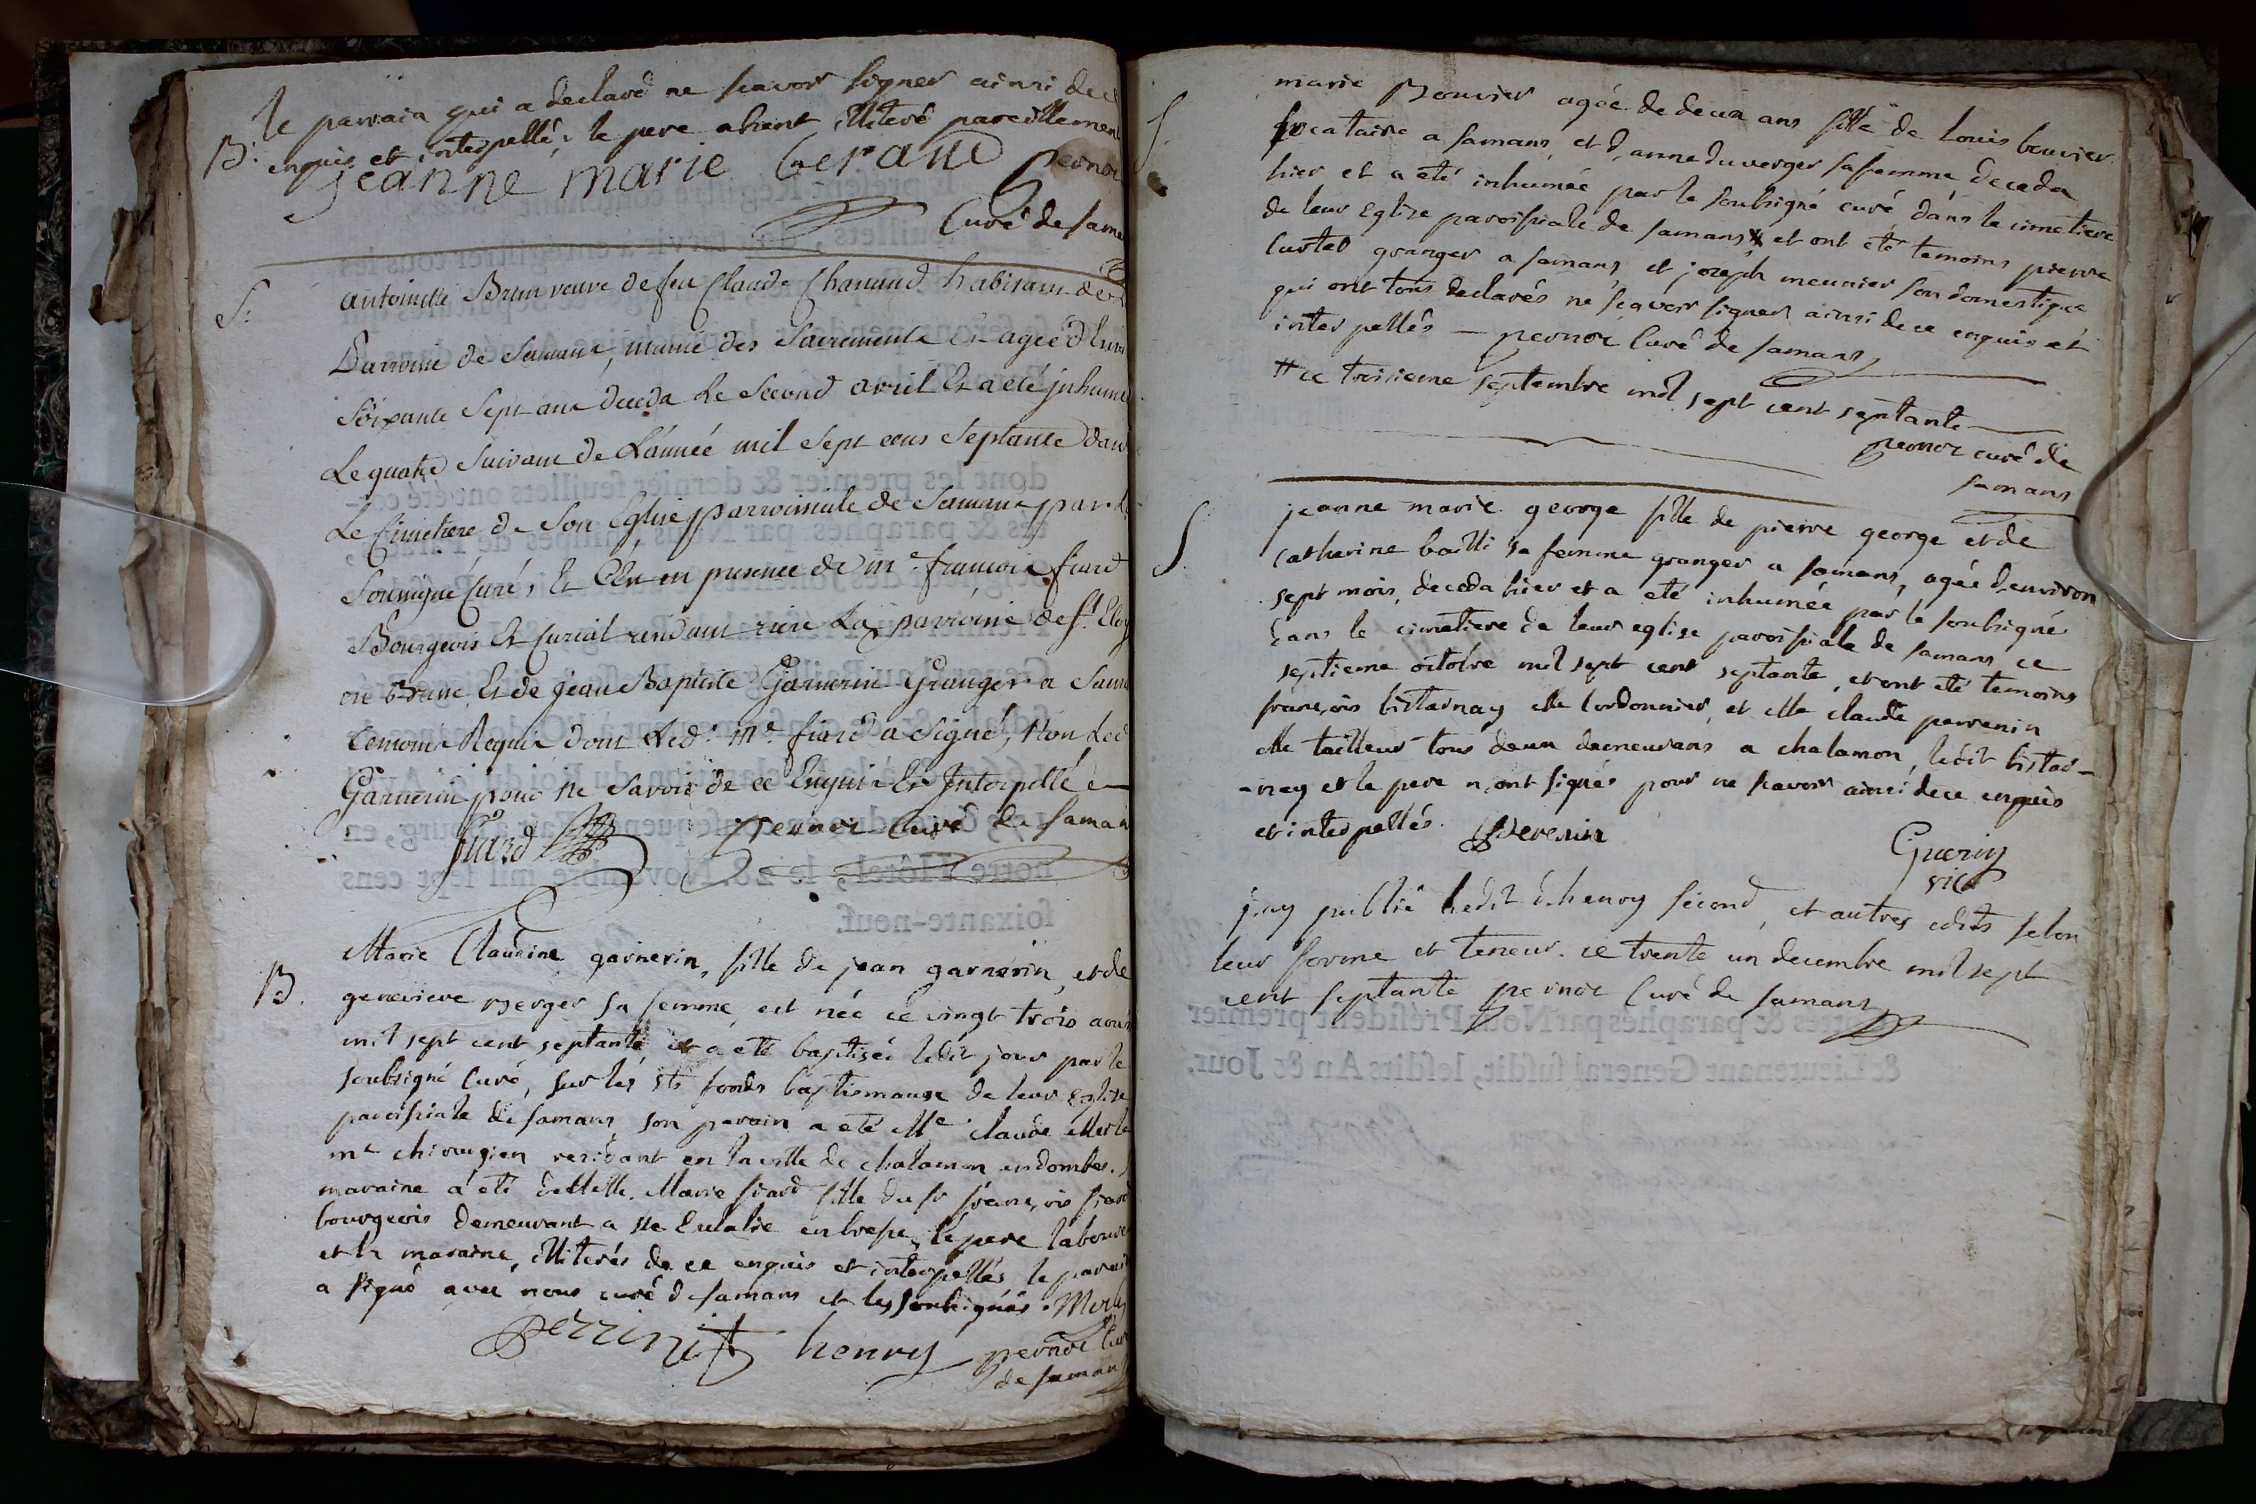 le parrain qui a declaré ne scavoir signer ainsi de ce
B. enquis et interpellé, le pere absent illiteré pareillement
jeanne marie Gerand pernoz
Curé de sama
S. antoinette Brun veuve de feu Claude Chanaud habitant de
Parroisse de Samans, munie des Sacrements Et agée d'huis
Soixante Sept ans deceda Le Second avril Et a eté jnhumé
Le quatre Suivant de L'année mil Sept cens Septante dans
Le Cimetiere de Son Eglise parroissiale de Samans par le
Soussigné Curé, Et Cen en presence de me. francois fiard
Bourgeois Et Curial rendant riere La parroisse de ste Eloy
en Bresse Et de jean Baptiste Garnerin Granger a Sama
temoins Requis dont Led. me. fiard a Signé, Non Led
Garnerin pour Ne Savoir de ce Enquis Et Interpellé
fiard pernoz Curé de Saman
B. Marie Claudine garnerin, fille de jean garnerin, et de
genevieve Berger sa femme est née ce vingt trois aoust
mil sept cent septante et a eté baptisée ledit jour par le
soubsigné Curé, sur les sts fonds baptismaux de leur Eglise
paroissiale de Samans son parain a eté Me. claude Merle
me chirurgien residant en la ville de chalamon en dombes.
maraine a eté delle. Marie fiard fille du sr francois fiard
bourgeois demeurant a ste Eulalie en bresse, le pere laboure
et la maraine, illiterés de ce enquis et interpellés, le parain
a signé avec nous curé de samans et les soubsignés. Merle
perrinit henry pernoz Cur
de saman
S. marie Bouvier agée de deux ans fille de Louis bouvier
locataire a samans, et d'anne duverger sa femme deceda
hier et a eté inhumée par le soubsigné curé dans le cimetiere
de leur Eglise paroissiale de samans # et ont eté temoins pierre
lurtet granger a samans, et joseph meunier son domestique
qui ont tous declarés ne scavoir signer ainsi de ce enquis et
interpellés — pernoz Curé de samans
# ce troisieme septembre mil sept cent septante
pernoz curé de
samans
S. jeanne marie george fille de pierre george et de
catherine bailli sa femme granger a samans, agée d'environ
sept mois, deceda hier et a eté inhumée par le soubsigné
dans le cimetiere de leur eglise paroissiale de samans ce
septieme octobre mil sept cent septante, et ont eté temoins
francois bistarnay Me Cordonnier, et Me claude perrenin
Me tailleur tous deux demeurans a chalamon, ledit bistar-
-nay et le pere n'ont signés pour ne scavoir ainsi de ce enquis
et interpellés. Perenin
Guerin
vic
j'ay publié l'edit d'henry second, et autres edits selon
leur forme et teneur. ce trente un decembre mil sept
cent septante pernoz Curé de samans